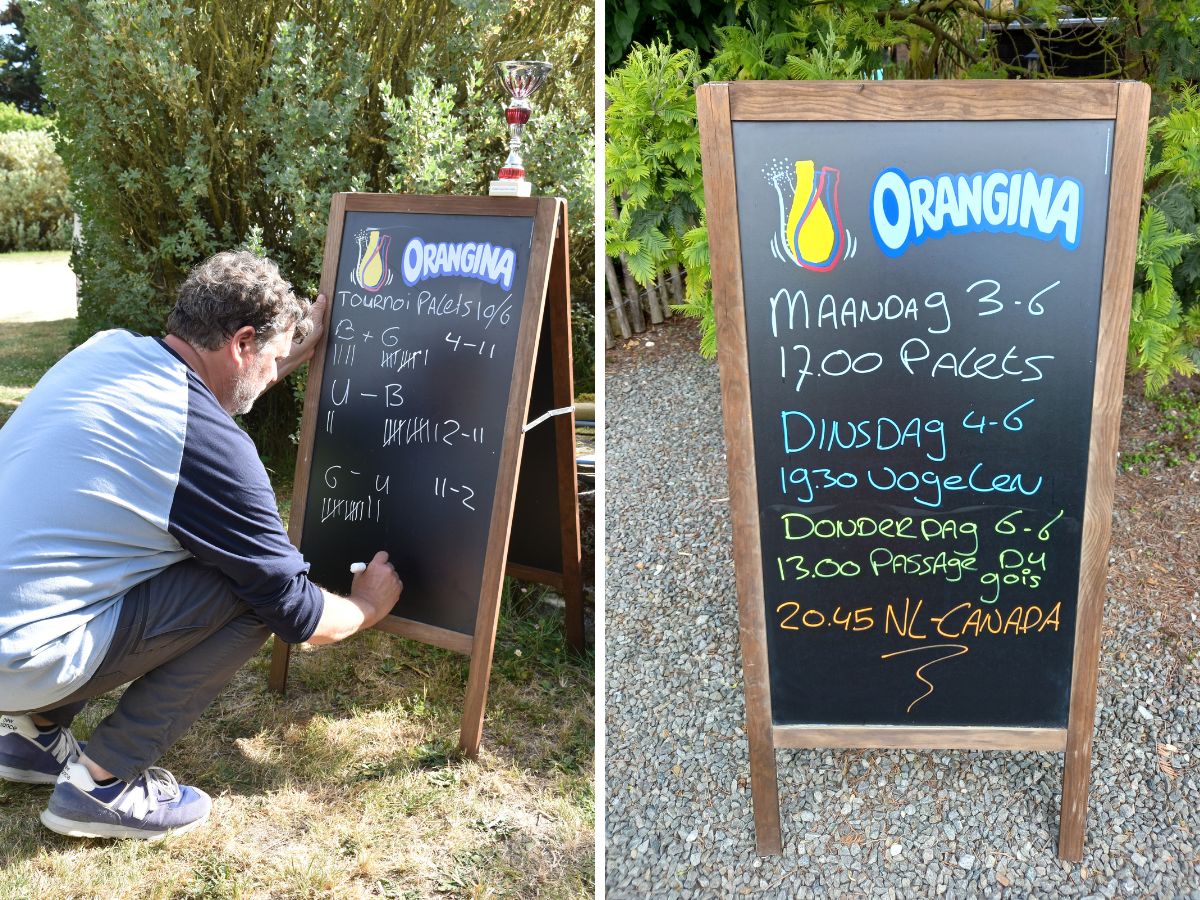 ORANGINA
TOURNOI PALETS 10/6
B + G 4-11
U - B
2-11
G - U 11-2
ORANGINA
MAANDAG 3-6
17.00 PALETS
DINSDAG 4-6
19.30 VOGELEN
DONDERDAG 6-6
13.00 PASSAGE DU
GOIS
20.45 NL-CANADA